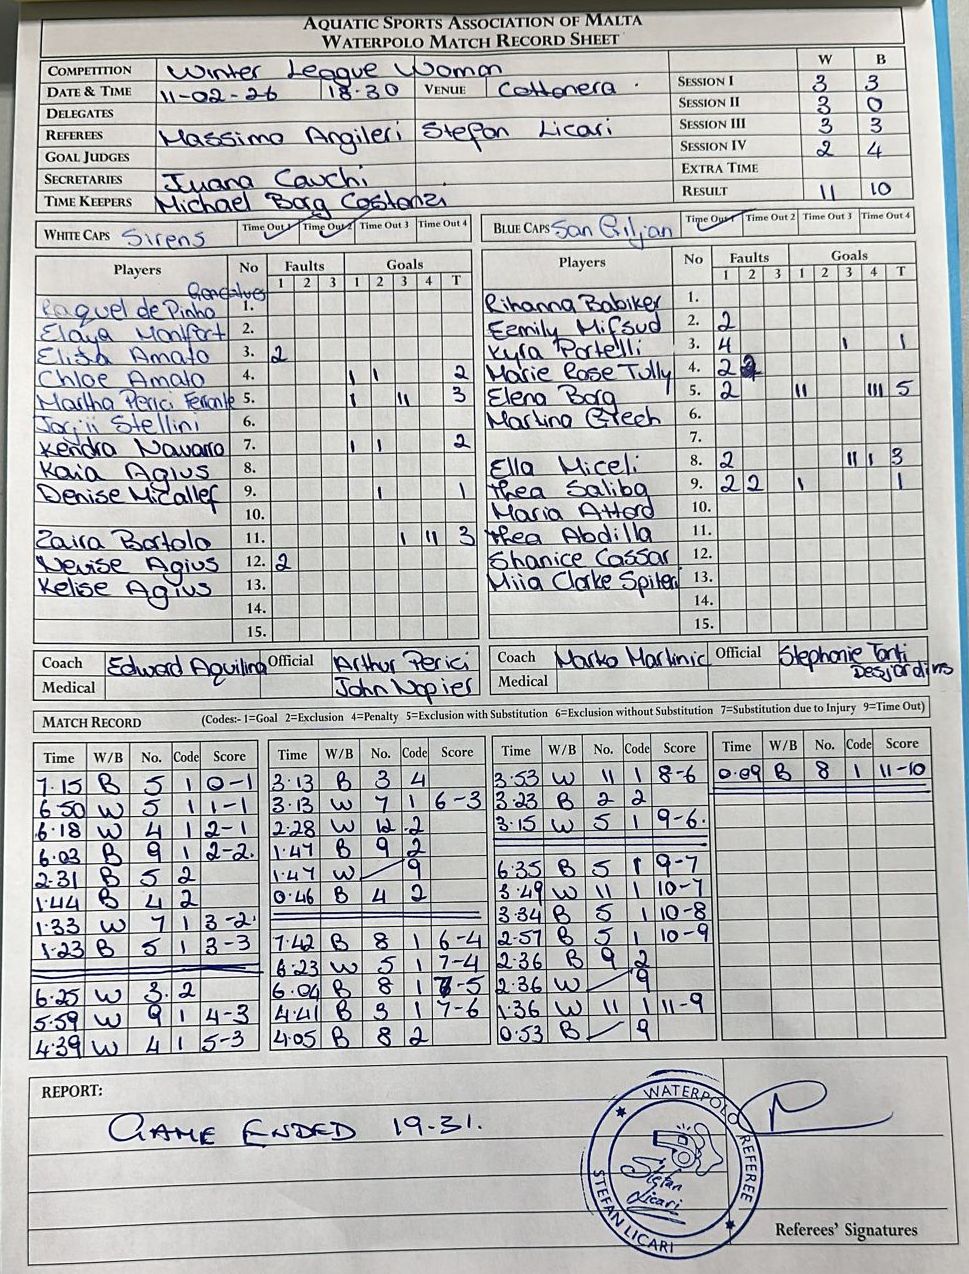 AQUATIC SPORTS ASSOCIATION OF MALTA
WATERPOLO MATCH RECORD SHEET
COMPETITION Winter League Woman W B
DATE & TIME 11-02-26 18.30 VENUE Cottonera . SESSION I 3 3
DELEGATES SESSION II 3 0
REFEREES Massimo Angileri Stefan Licari SESSION III 3 3
GOAL JUDGES SESSION IV 2 4
SECRETARIES Juana Cauchi EXTRA TIME
TIME KEEPERS Michael Borg Costanzi RESULT 11 10
WHITE CAPS Sirens Time Out 1 Time Out 2 Time Out 3 Time Out 4
BLUE CAPS San Giljan Time Out 1 Time Out 2 Time Out 3 Time Out 4
Players No Faults Goals
1 2 3 1 2 3 4 T
Raquel de Pinho Goncalves 1.
Elaya Monfort 2.
Elisa Amato 3. 2
Chloe Amato 4. I I 2
Martha Perici Ferrante 5. I II 3
Jorji Stellini 6.
Kendra Navarro 7. I I 2
Kaia Agius 8.
Denise Micallef 9. I 1
10.
Zaira Bartolo 11. I II 3
12. 2
Kelise Agius 13.
14.
15.
Players No Faults Goals
1 2 3 1 2 3 4 T
Rihanna Babiker 1.
Eemily Mifsud 2. 2
Kyra Portelli 3. 4 I 1
Marie Rose Tully 4. 2 2
Elena Borg 5. 2 II III 5
Martina Grech 6.
7.
Ella Miceli 8. 2 II I 3
Thea Saliba 9. 2 2 I 1
Maria Attard 10.
Thea Abdilla 11.
Shanice Cassar 12.
Miia Clarke Spiteri 13.
14.
15.
Coach Edward Aquilina Official Arthur Perici
Medical John Napier
Coach Marko Martinic Official Stephanie Tanti
Medical Desjardins
MATCH RECORD (Codes:- 1=Goal 2=Exclusion 4=Penalty 5=Exclusion with Substitution 6=Exclusion without Substitution 7=Substitution due to Injury 9=Time Out)
Time W/B No. Code Score
7.15 B 5 1 0-1
6.50 W 5 1 1-1
6.18 W 4 1 2-1
6.03 B 9 1 2-2.
2.31 B 5 2
1.44 B 4 2
1.33 W 7 1 3-2
1.23 B 5 1 3-3
6.25 W 3. 2
5.59 W 9 1 4-3
4.39 W 4 1 5-3
Time W/B No. Code Score
3.13 B 3 4
3.13 W 7 1 6-3
2.28 W 12 2
1.47 B 9 2
1.47 W 9
0.46 B 4 2
7.42 B 8 1 6-4
6.23 W 5 1 7-4
6.04 B 8 1 7-5
4.41 B 3 1 7-6
4.05 B 8 2
Time W/B No. Code Score
3.53 W 11 1 8-6
3.23 B 2 2
3.15 W 5 1 9-6.
6.35 B 5 1 9-7
3.49 W 11 1 10-7
3.34 B 5 1 10-8
2.57 B 5 1 10-9
2.36 B 9 2
2.36 W 9
1.36 W 11 1 11-9
0.53 B 9
Time W/B No. Code Score
0.09 B 8 1 11-10
REPORT:
GAME ENDED 19.31.
WATERPOLO REFEREE
Stefan
Licari
STEFAN LICARI
Referees' Signatures